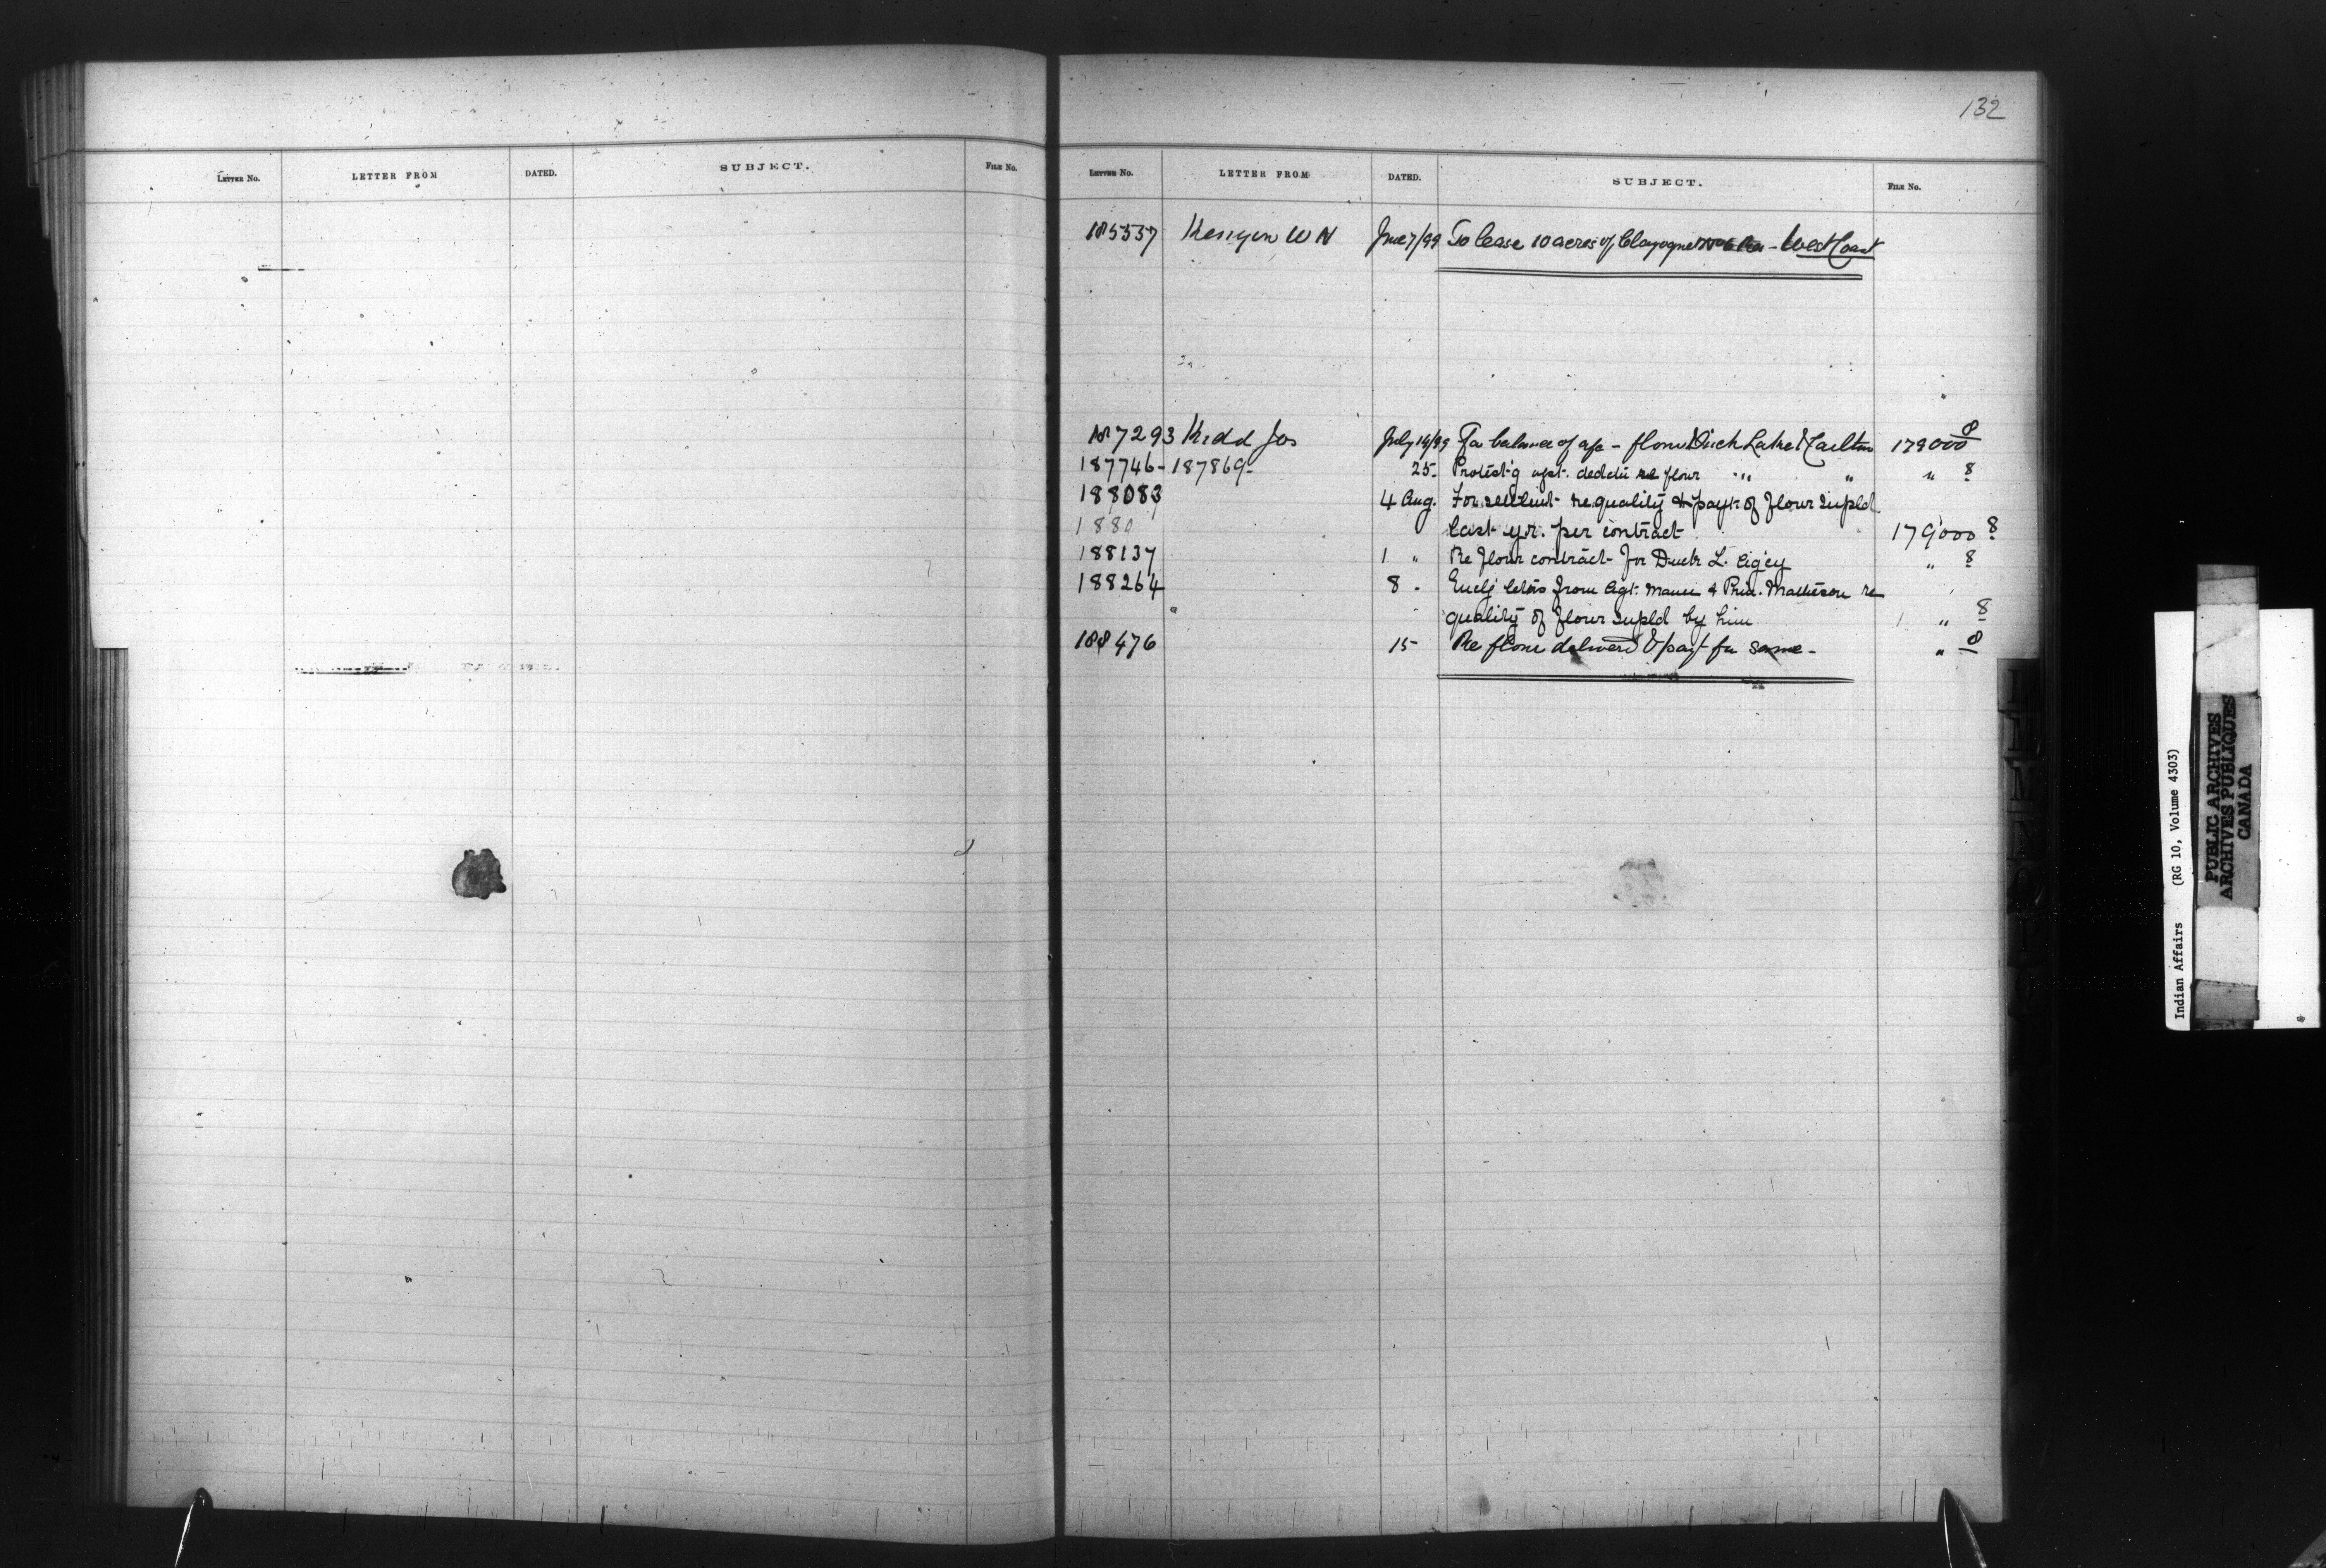 132
LETTER No. LETTER FROM DATED. SUBJECT. FILE No.
LETTER No. LETTER FROM DATED. SUBJECT. FILE No.
185537 Kenyon W N June 7/99 To lease 10 acres of Clayoquot - West Coast
187293 Kidd Jos July 14/99 For balance of a/c - flour Duck Lake & Carlton 179000 8
187746-187869- 25. Protest'g agst. deddtn re flour " " " 8
188083 4 Aug. For settlemt re quality & payt of flour supld
1880 last yr. per contract 179000 8
188137 1 " Re flour contract for Duck L. Ag'cy " 8
188264 8 " Encl'g letters from Agt. & Prin. Matheson re
quality of flour supld by him " 8
188476 15 Re flour delivered & payt for same - " 8
Indian Affairs (RG 10, Volume 4303)
PUBLIC ARCHIVES
ARCHIVES PUBLIQUES
CANADA